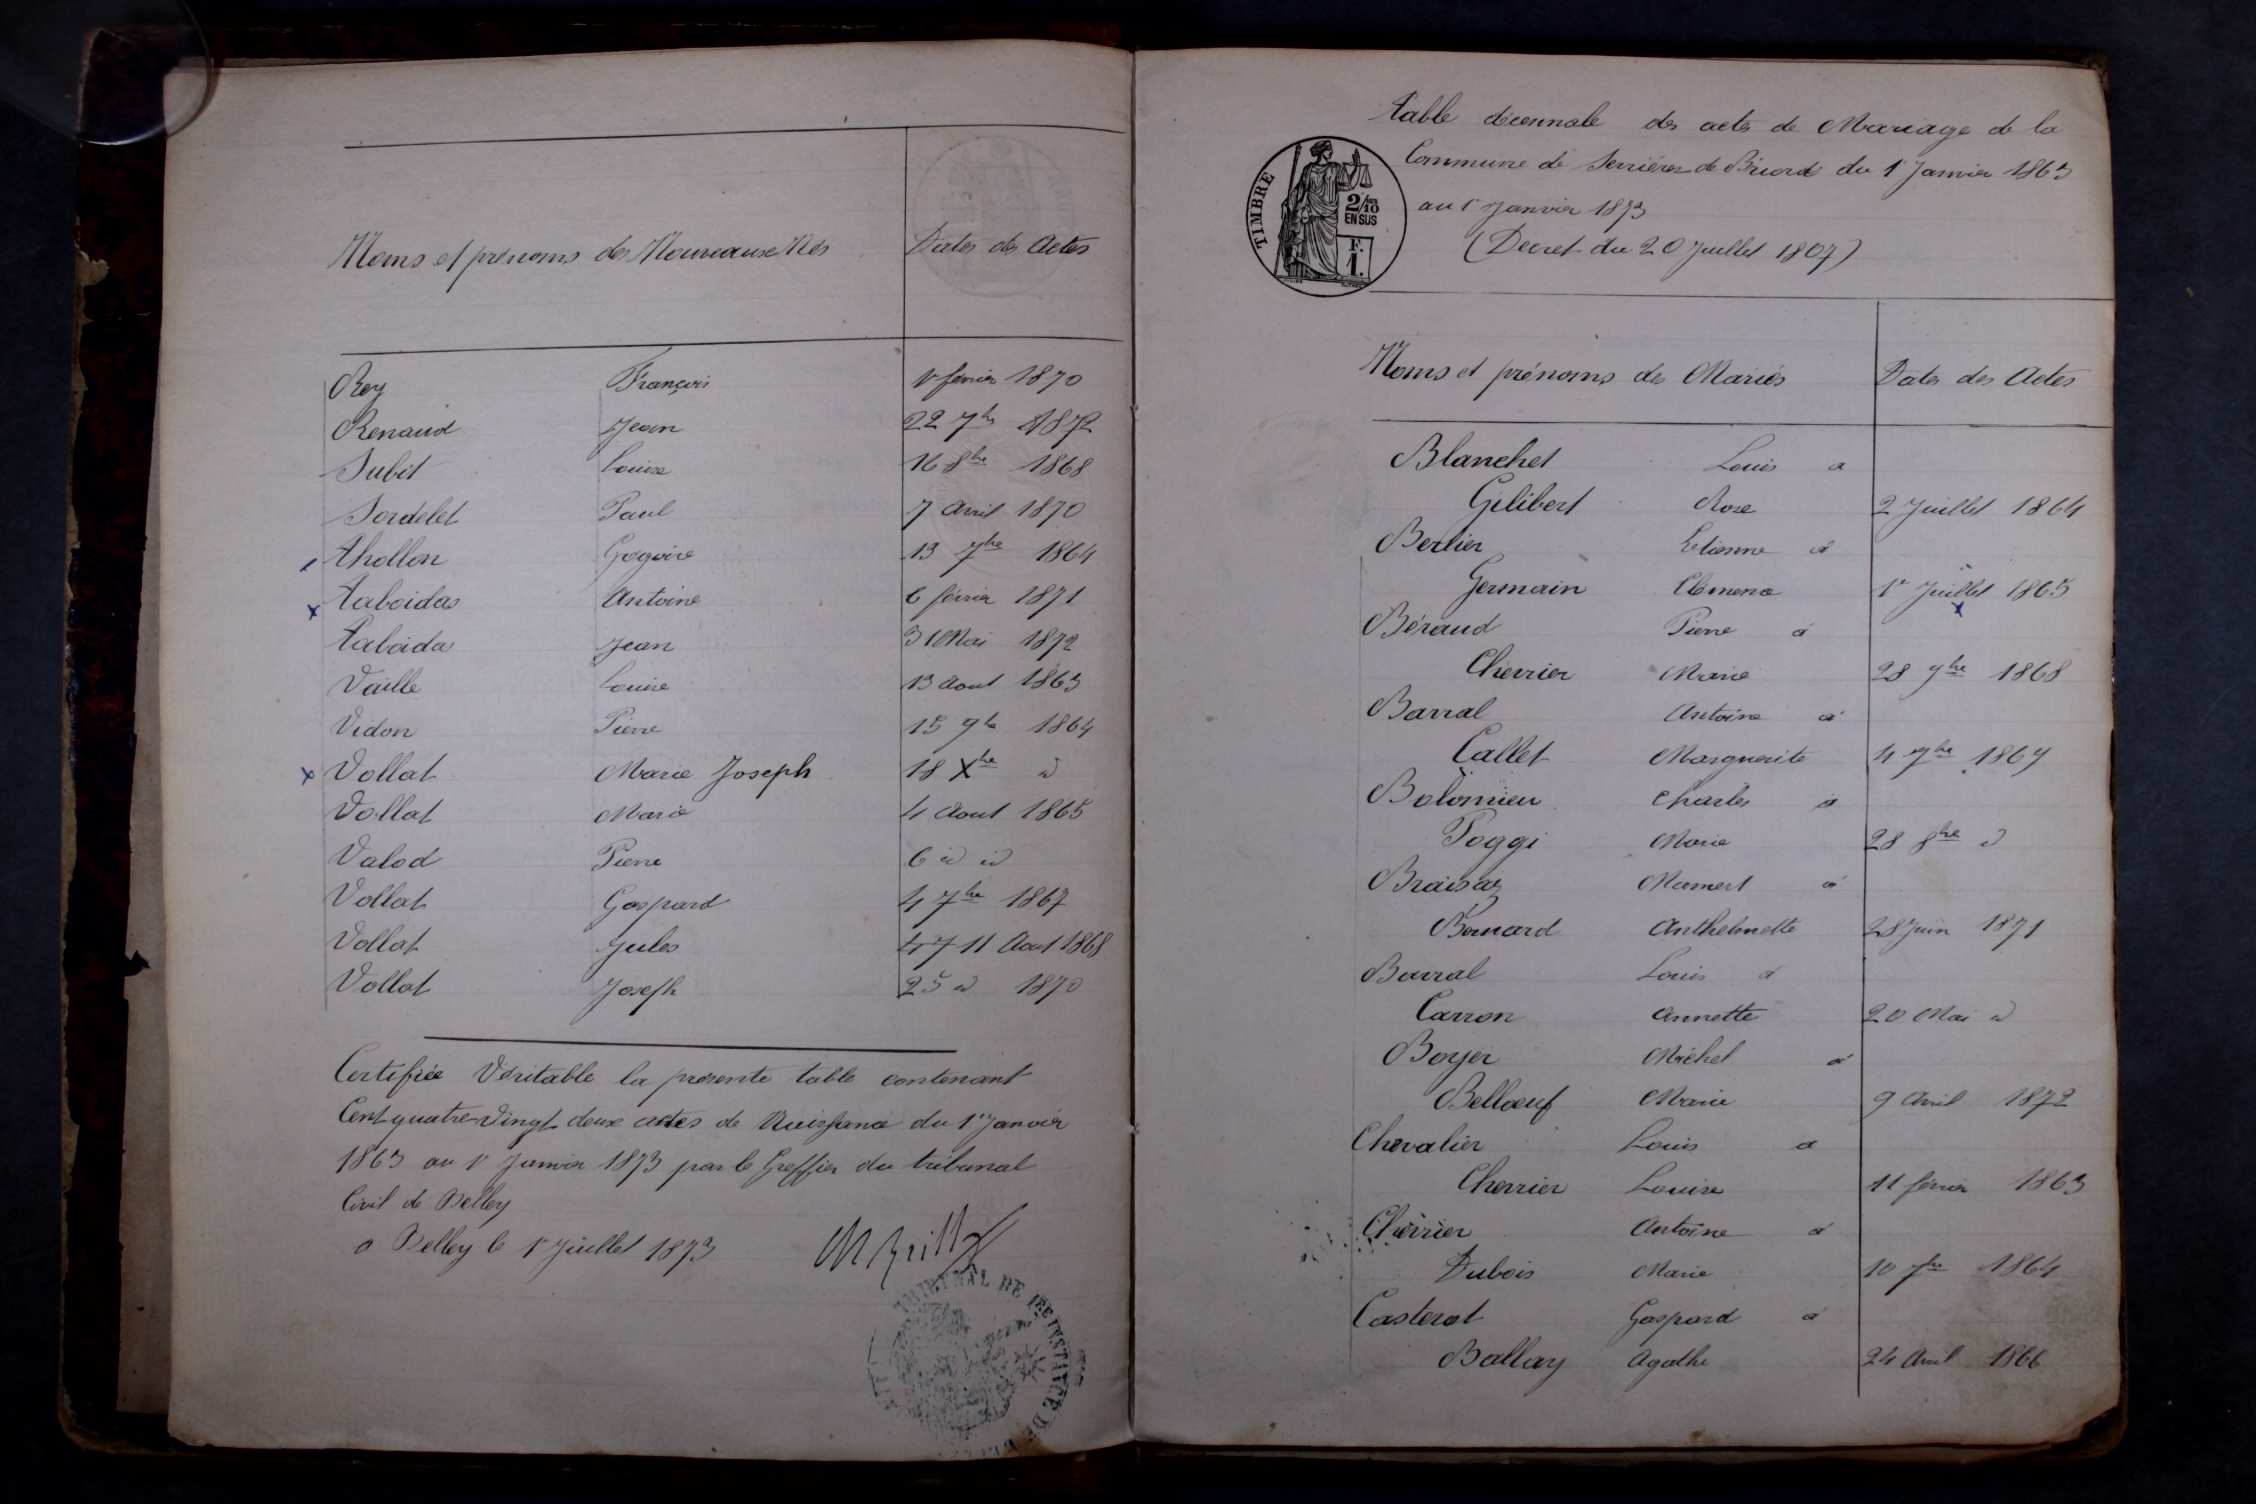 Noms et prénoms des Nouveaux Nés Dates des Actes
Rey François 1r février 1870
Renaud Jean 22 7bre 1872
Subit Louise 16 8bre 1868
Sordelet Paul 7 Avril 1870
Thollon Gregoire 13 7bre 1864
x Taboidas Antoine 6 février 1871
Taboida Jean 31 Mai 1872
Vaille Louise 13 Aout 1863
Vidon Pierre 15 9bre 1864
x Vollat Marie Joseph 18 Xbre id
Vollat Marie 4 Aout 1865
Valod Pierre 6 id id
Vollat Gaspard 4 7bre 1867
Vollat Jules 4 7 11 Aout 1868
Vollat Joseph 25 id 1870
Certifiée Véritable la présente table contenant
Cent quatre-Vingt deux actes de Naissance du 1er Janvier
1863 au 1r Janvier 1873 par le Greffier du tribunal
Civil de Belley
a Belley le 1r Juillet 1873
TRIBUNAL DE 1ERE INSTANCE DE
Table décennale des actes de Mariage de la
Commune de Serrières de Briord du 1r Janvier 1863
au 1r Janvier 1873
(Decret du 20 Juillet 1807)
TIMBRE
2/10
EN SUS
F.
1.
Noms et prénoms des Mariés Dates des Actes
Blanchet Louis a
Gilibert Rose 2 Juillet 1864
Berlier Etienne à
Germain Clemence 1r Juillet 1865
x
Béraud Pierre à
Cherrier Marie 28 9bre 1868
Barral Antoine à
Callet Marguerite 4 9bre 1869
Bolomieu Charles a
Poggi Marie 28 8bre id
Braisaz Mamert à
Bernard Anthelmette 28 Juin 1871
Barral Louis à
Carron Annette 20 Mai id
Boyer Michel à
Bellœuf Marie 9 Avril 1872
Chevalier Louis a
Cherrier Louise 11 février 1863
Cherrier Antoine à
Dubois Marie 10 7bre 1864
Casterot Gaspard à
Ballay Agathe 24 Avril 1866